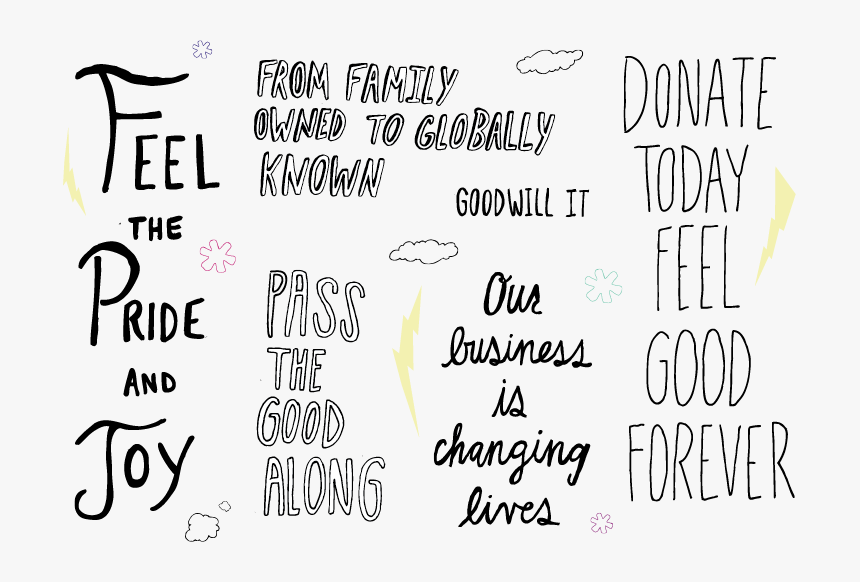 FEEL
THE
PRIDE
AND
JOY
FROM FAMILY
OWNED TO GLOBALLY
KNOWN
GOODWILL IT
PASS
THE
GOOD
ALONG
Our
business
is
changing
lives
DONATE
TODAY
FEEL
GOOD
FOREVER